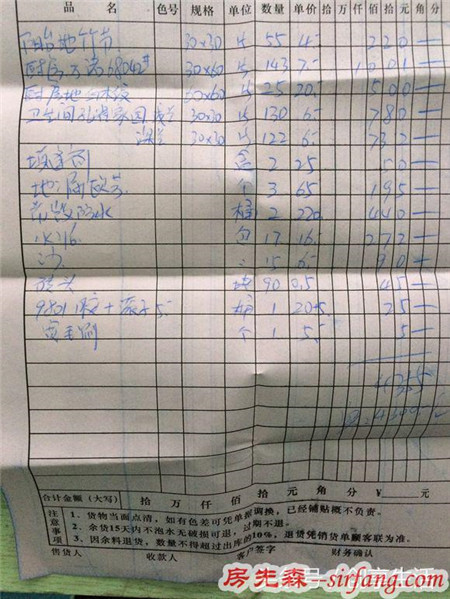 品 名 色号 规格 单位 数量 单价 拾 万 仟 佰 拾 元 角 分
阳台地竹节 30×30 片 55 4 2 2 0
30×60 片 143 7 1 0 0 1
厨房地 60×60 片 25 20 5 0 0
卫生间 30×30 片 130 6 7 8 0
30×30 片 122 6 7 3 2
填缝剂 盒 2 25 5 0
个 3 65 1 9 5
防水 桶 2 220 4 4 0
水泥 包 17 16 2 7 2
沙 15 6 9 0
90 0.5 4 5
1 20+5 2 5
个 1 5 5
4355
合计金额（大写） 拾 万 仟 佰 拾 元 角 分 ￥ 元
注意事项
1、货物当面点清，如有色差可凭单据调换，已经铺贴概不负责。
2、余货15天内不泡水无破损可退，过期不退。
3、因余料退货，数量不得超过出库的10%，退货凭销货单顾客联为准。
售货人 收款人 客户签字 财务确认
房先森-sirfang.com